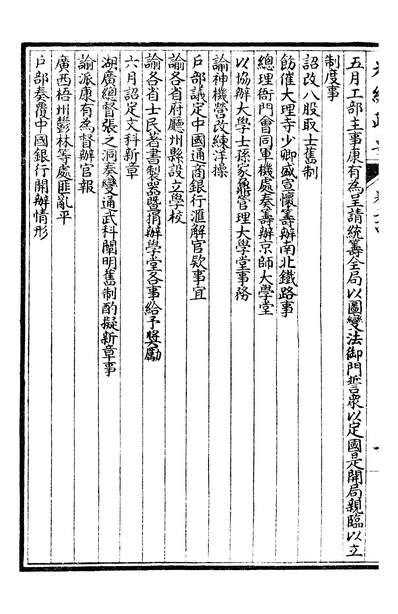 五月工部主事康有為呈請統籌全局以圖變法御門誓眾以定國是開局親臨以立
制度事
詔改八股取士舊制
飭催大理寺少卿盛宣懷籌辦南北鐵路事
總理衙門會同軍機處奏籌辦京師大學堂
以協辦大學士孫家鼐管理大學堂事務
諭神機營改練洋操
戶部議定中國通商銀行滙解官欵事宜
諭各省府廳州縣設立學校
諭各省士民著書製器暨捐辦學堂各事給予獎勵
六月詔定文科新章
湖廣總督張之洞奏變通武科闡明舊制酌擬新章事
諭派康有為督辦官報
廣西梧州鬱林等處匪亂平
戶部奏覆中國銀行開辦情形